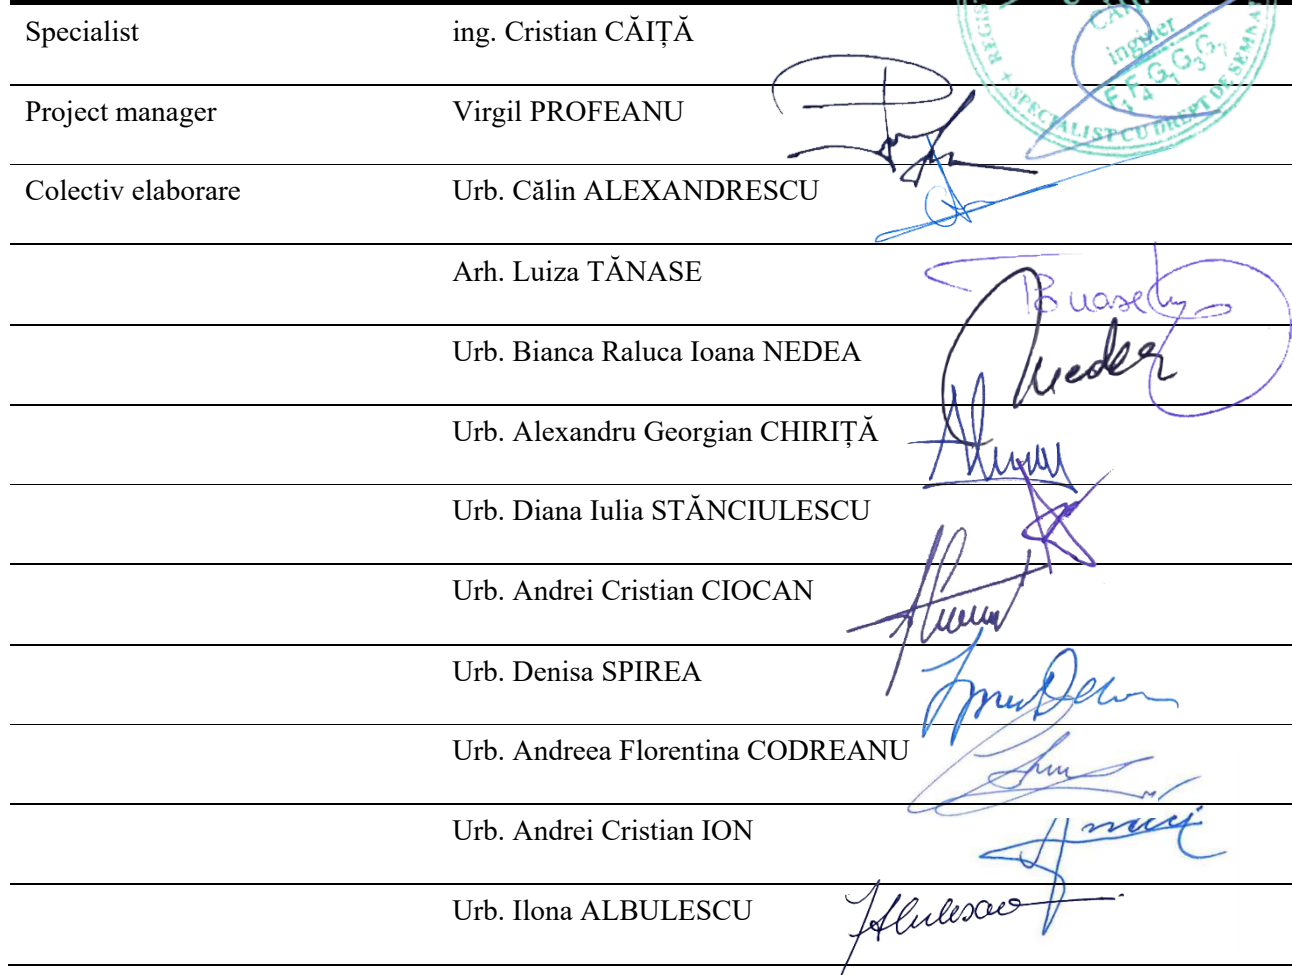 Specialist ing. Cristian CĂIȚĂ
Project manager Virgil PROFEANU
Colectiv elaborare Urb. Călin ALEXANDRESCU
Arh. Luiza TĂNASE
Urb. Bianca Raluca Ioana NEDEA
Urb. Alexandru Georgian CHIRIȚĂ
Urb. Diana Iulia STĂNCIULESCU
Urb. Andrei Cristian CIOCAN
Urb. Denisa SPIREA
Urb. Andreea Florentina CODREANU
Urb. Andrei Cristian ION
Urb. Ilona ALBULESCU
inginer
SPECIALIST CU DREPT DE
Nedea